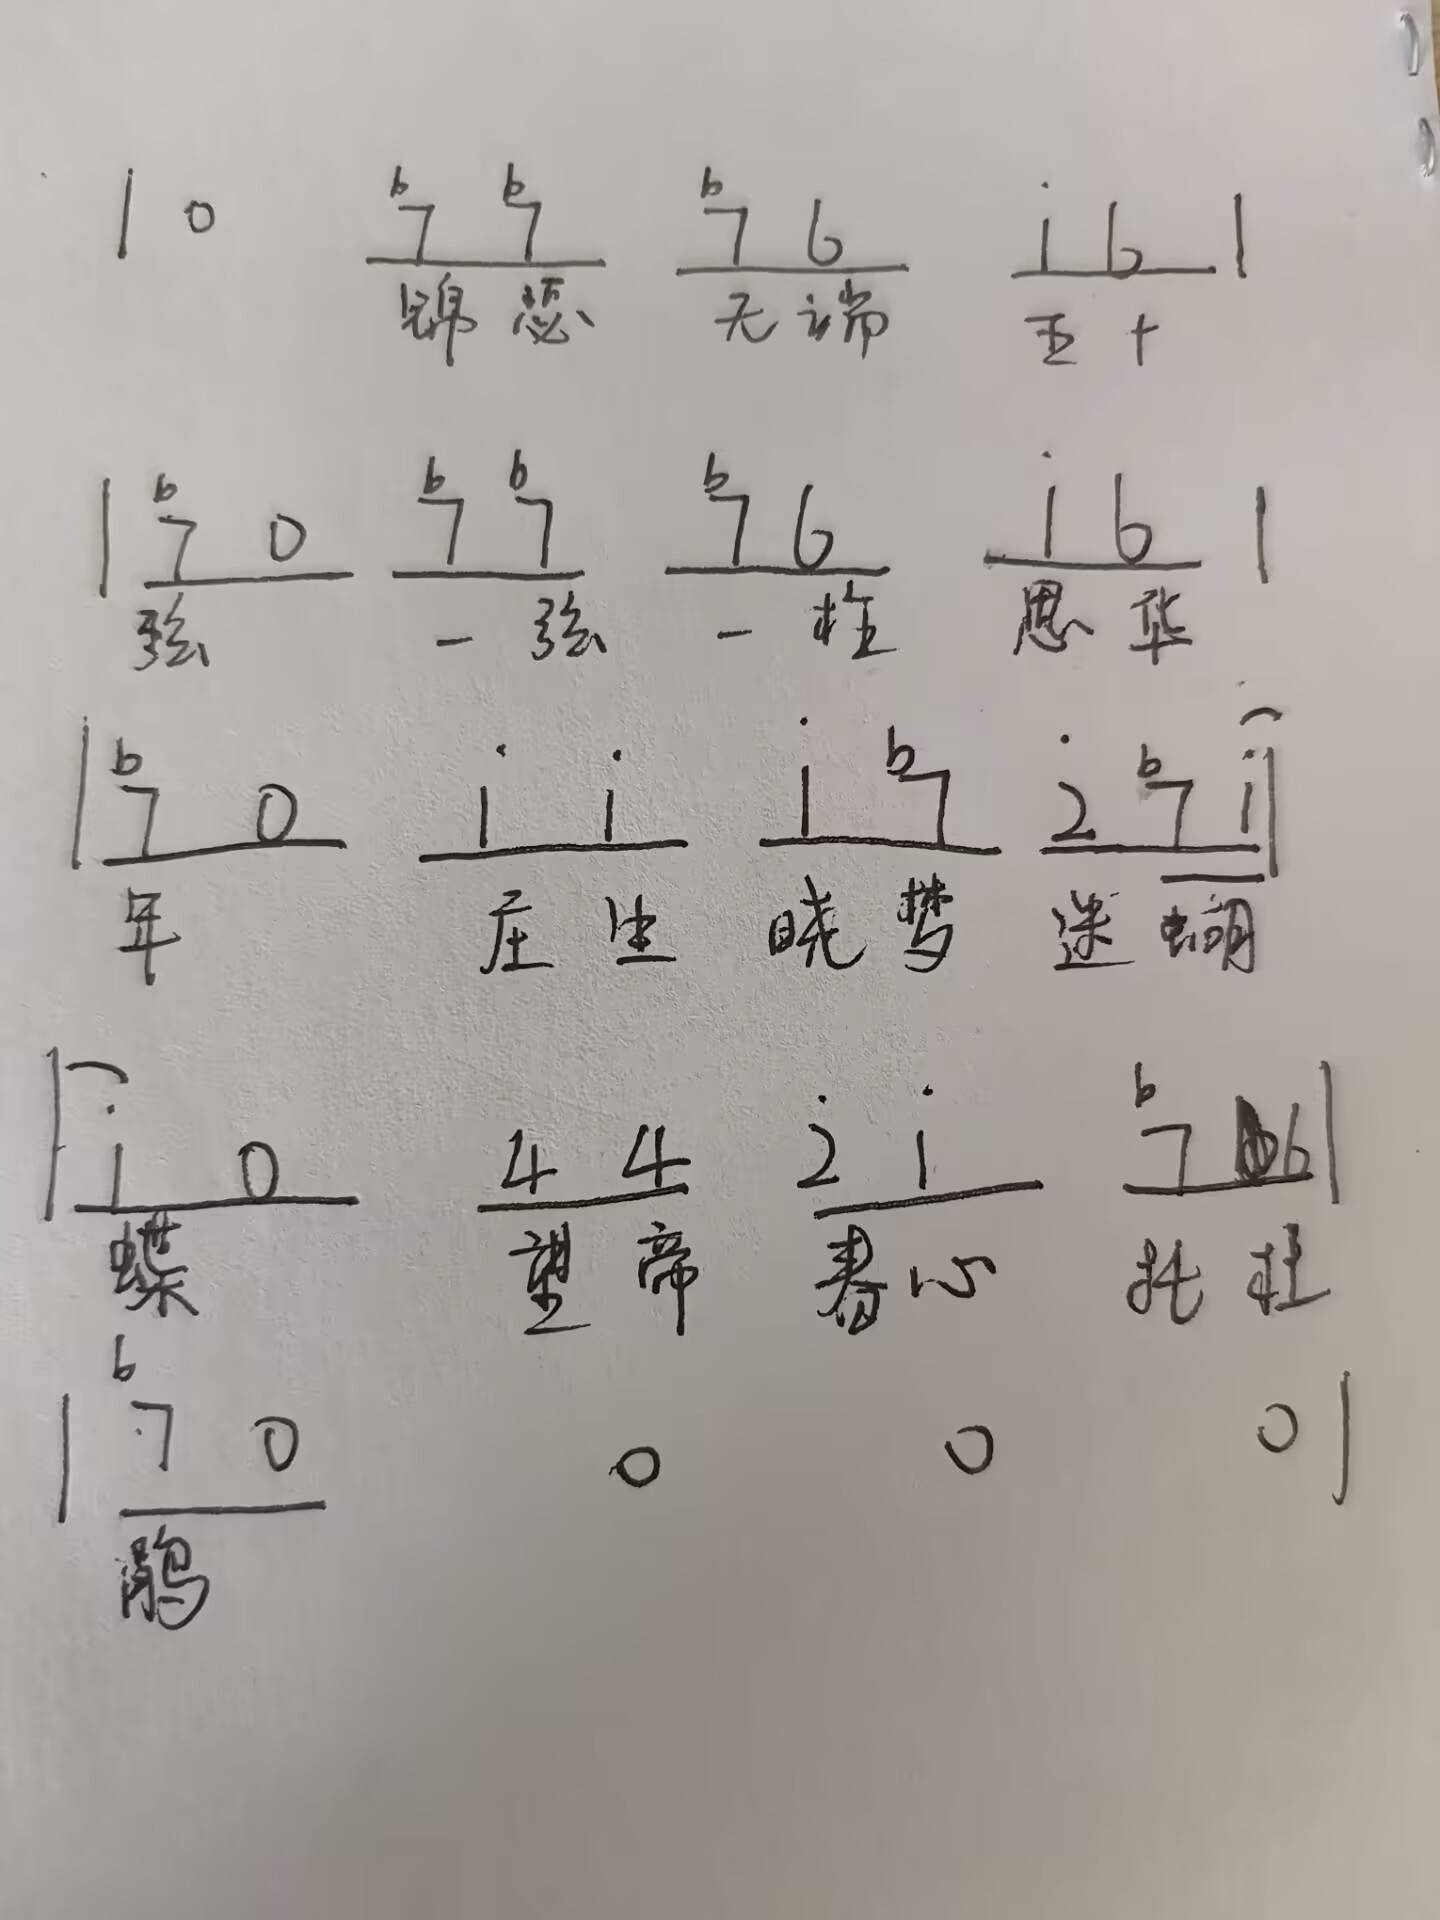 | 0 ♭7 ♭7 ♭7 6 i 6 |
锦 瑟 无 端 五 十
| ♭7 0 ♭7 ♭7 ♭7 6 i 6 |
弦 一 弦 一 柱 思 华
| ♭7 0 i i i ♭7 2̇ ♭7 i |
年 庄 生 晓 梦 迷 蝴
| i 0 4 4 2̇ i ♭7 6 |
蝶 望 帝 春 心 托 杜
| ♭7 0 0 0 0 |
鹃